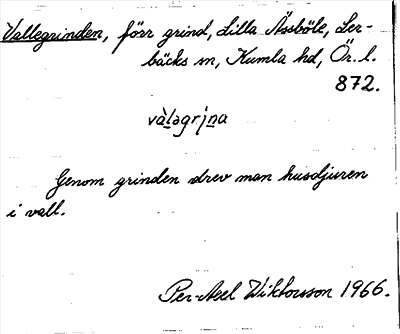 Vallegrinden, förr grind, Lilla Åssböle, Ler-
bäcks sn, Kumla hd, Ör. l.
872.
vàlǝgrịna
Genom grinden drev man husdjuren
i vall.
Per-Axel Wiktorsson 1966.